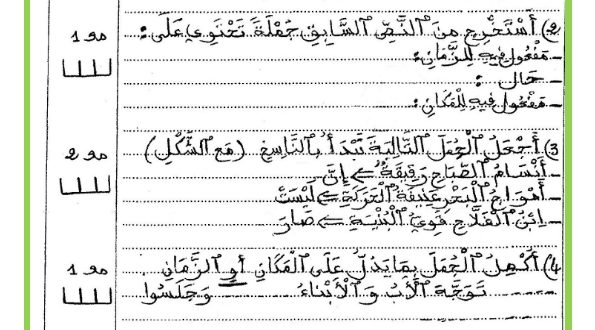 2) أَسْتَخْرِجُ مِنَ ٱلنَّصِّ ٱلسَّابِقِ جُمْلَةً تَحْتَوِي عَلَى:
مع 1
- مَفْعُول فِيهِ لِلزَّمَانِ:
- حَال :
- مَفْعُول فِيهِ لِلْمَكَانِ:
3) أَجْعَلُ ٱلْجُمَلَ ٱلتَّالِيَةَ تَبْدَأُ بِٱلنَّاسِخِ (مَعَ ٱلشَّكْلِ)
مع 2
- أَنْسَامُ ٱلصَّبَاحِ رَقِيقَةٌ => إِنَّ
- أَمْوَاجُ ٱلْبَحْرِ عَنِيفَةُ ٱلْحَرَكَةِ => لَيْسَتْ
- اِبْنُ ٱلْفَلَّاحِ قَوِيُّ ٱلْبُنْيَةِ => صَارَ
4) أُكْمِلُ ٱلْجُمَلَ بِمَا يَدُلُّ عَلَى ٱلْمَكَانِ أَوِ ٱلزَّمَانِ
مع 1
تَوَجَّهَ ٱلْأَبُ وَ ٱلْأَبْنَاءُ وَجَلَسُوا